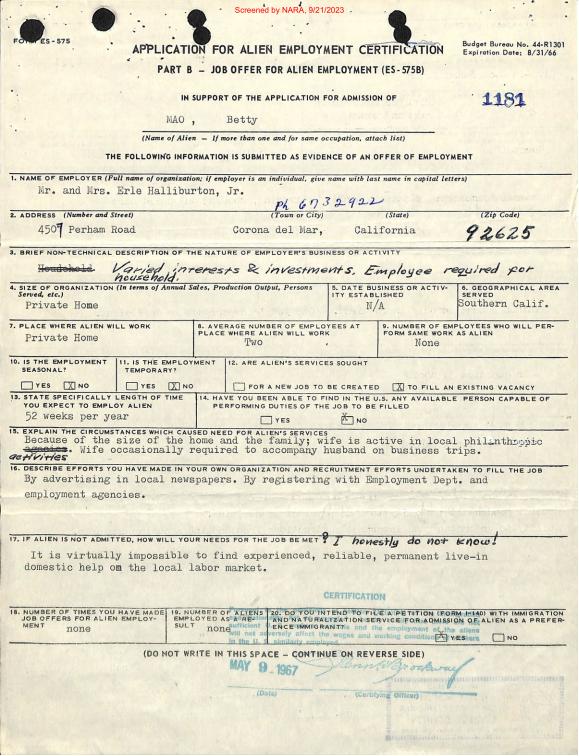 Screened by NARA, 9/21/2023
FORM ES-575
APPLICATION FOR ALIEN EMPLOYMENT CERTIFICATION
Budget Bureau No. 44-R1301
Expiration Date: 8/31/66
PART B – JOB OFFER FOR ALIEN EMPLOYMENT (ES-575B)
IN SUPPORT OF THE APPLICATION FOR ADMISSION OF
1181
MAO , Betty
(Name of Alien – If more than one and for same occupation, attach list)
THE FOLLOWING INFORMATION IS SUBMITTED AS EVIDENCE OF AN OFFER OF EMPLOYMENT
1. NAME OF EMPLOYER (Full name of organization; if employer is an individual, give name with last name in capital letters)
Mr. and Mrs. Erle Halliburton, Jr.
Ph 6732922
2. ADDRESS (Number and Street) (Town or City) (State) (Zip Code)
4507 Perham Road Corona del Mar, California 92625
3. BRIEF NON-TECHNICAL DESCRIPTION OF THE NATURE OF EMPLOYER'S BUSINESS OR ACTIVITY
Household. Varied interests & investments. Employee required for
household.
4. SIZE OF ORGANIZATION (In terms of Annual Sales, Production Output, Persons Served, etc.)
Private Home
5. DATE BUSINESS OR ACTIVITY ESTABLISHED
N/A
6. GEOGRAPHICAL AREA SERVED
Southern Calif.
7. PLACE WHERE ALIEN WILL WORK
Private Home
8. AVERAGE NUMBER OF EMPLOYEES AT PLACE WHERE ALIEN WILL WORK
Two
9. NUMBER OF EMPLOYEES WHO WILL PERFORM SAME WORK AS ALIEN
None
10. IS THE EMPLOYMENT SEASONAL?
YES X NO
11. IS THE EMPLOYMENT TEMPORARY?
YES X NO
12. ARE ALIEN'S SERVICES SOUGHT
FOR A NEW JOB TO BE CREATED X TO FILL AN EXISTING VACANCY
13. STATE SPECIFICALLY LENGTH OF TIME YOU EXPECT TO EMPLOY ALIEN
52 weeks per year
14. HAVE YOU BEEN ABLE TO FIND IN THE U.S. ANY AVAILABLE PERSON CAPABLE OF PERFORMING DUTIES OF THE JOB TO BE FILLED
YES X NO
15. EXPLAIN THE CIRCUMSTANCES WHICH CAUSED NEED FOR ALIEN'S SERVICES
Because of the size of the home and the family; wife is active in local philanthropic
agencies. Wife occasionally required to accompany husband on business trips.
activities
16. DESCRIBE EFFORTS YOU HAVE MADE IN YOUR OWN ORGANIZATION AND RECRUITMENT EFFORTS UNDERTAKEN TO FILL THE JOB
By advertising in local newspapers. By registering with Employment Dept. and
employment agencies.
17. IF ALIEN IS NOT ADMITTED, HOW WILL YOUR NEEDS FOR THE JOB BE MET? I honestly do not know!
It is virtually impossible to find experienced, reliable, permanent live-in
domestic help on the local labor market.
CERTIFICATION
18. NUMBER OF TIMES YOU HAVE MADE JOB OFFERS FOR ALIEN EMPLOYMENT
none
19. NUMBER OF ALIENS EMPLOYED AS A RESULT
none
20. DO YOU INTEND TO FILE A PETITION (FORM I-140) WITH IMMIGRATION AND NATURALIZATION SERVICE FOR ADMISSION OF ALIEN AS A PREFERENCE IMMIGRANT?
X YES NO
and the employment of the aliens
will not adversely affect the wages and working conditions
in the U.S. similarly employed.
(DO NOT WRITE IN THIS SPACE – CONTINUE ON REVERSE SIDE)
MAY 9 1967
(Date) (Certifying Officer)